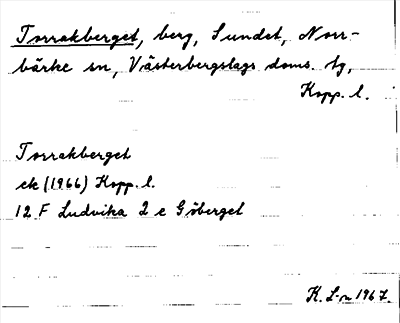 Torrakberget, berg, Sundet, Norr-
bärke sn, Västerbergslags doms. tg,
Kopp. l.
Torrakberget
ek (1966) Kopp. l.
12 F Ludvika 2 e Gåberget
K. L-m 1967.